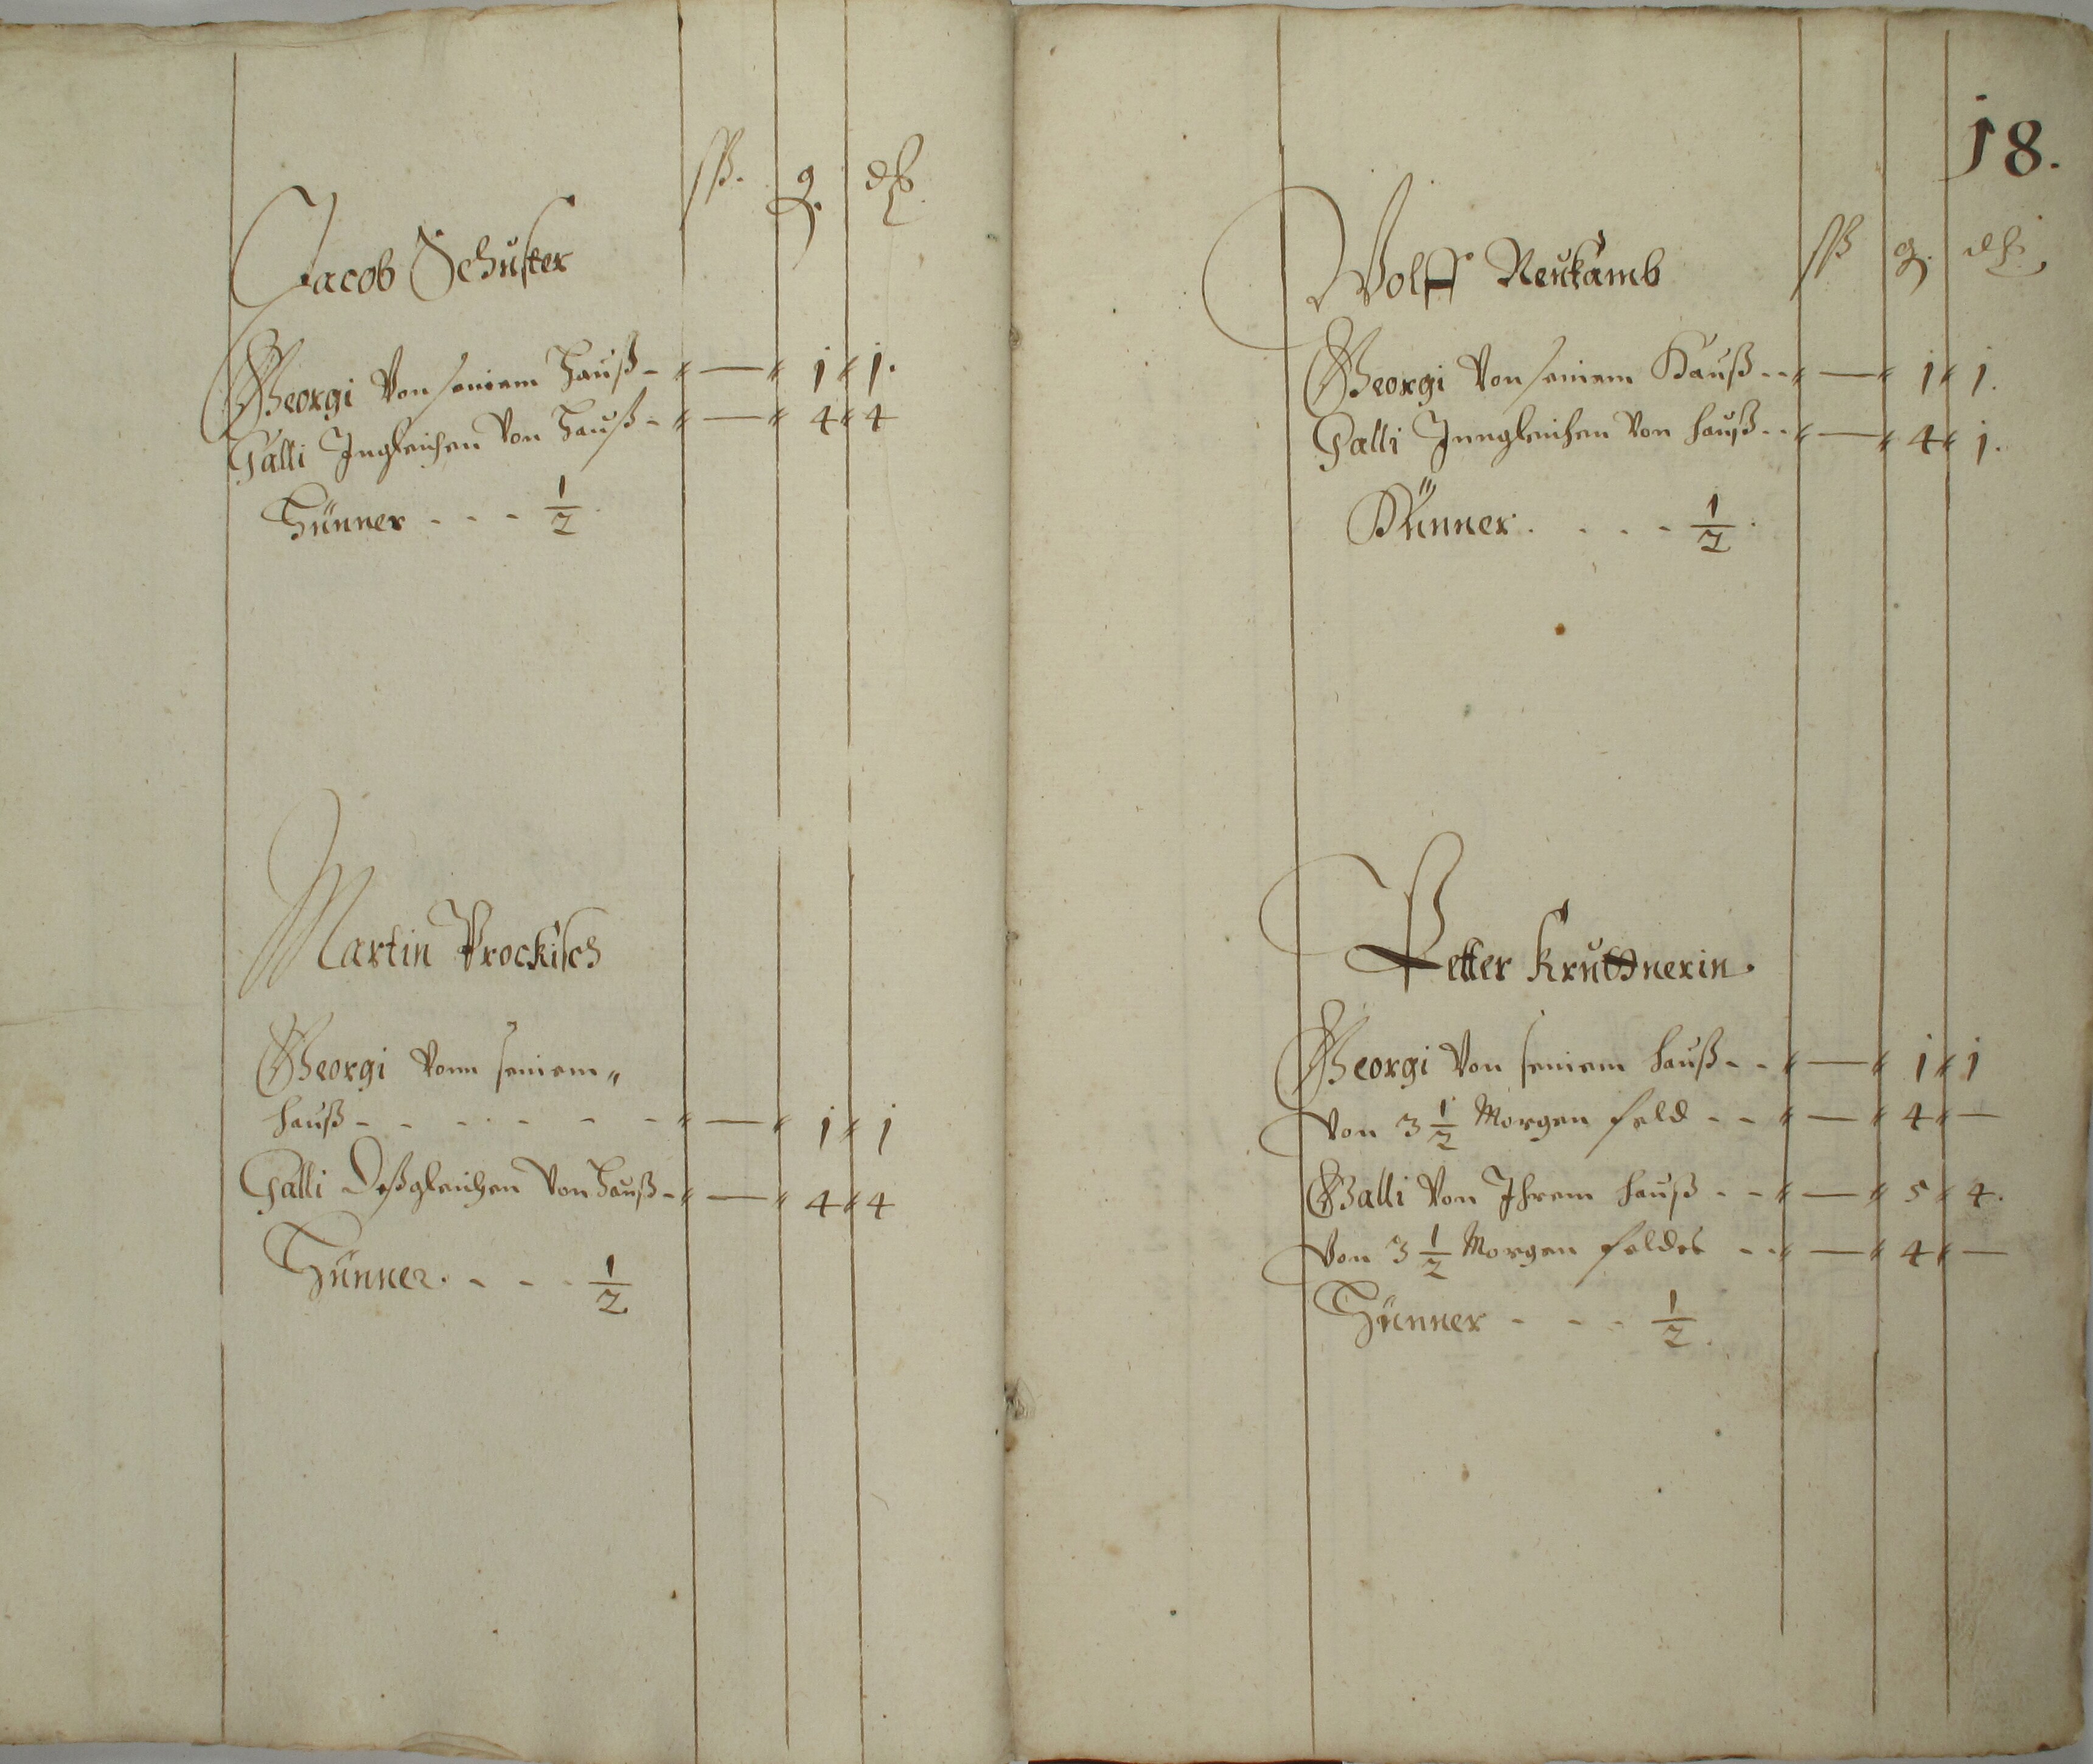 ſß. g. dß.
Jacob Schuster
Georgi Von seinem Hauß - " — " 1 " 1.
Galli Ingleichen Von Hauß - " — " 4 " 4
Hünner - - - 1/2.
Martin Prockisch
Georgi Vonn seinem "
hauß - - - - - - " — " 1 " 1
Galli Deßgleichen Von Hauß - " — " 4 " 4
Hünner. - - - 1/2
18.
ſß g. dß.
Wolff Neukamb
Georgi Von seinem Hauß - - " — " 1 " 1.
Galli Inngleichen Von hauß - - " — " 4 " 1.
Hünner. - - - 1/2.
Petter Kruttnerin.
Georgi Von seinem hauß - - " — " 1 " 1
Von 3 1/2 Morgen feld - - " — " 4 " —
Galli Von Ihrem hauß - - " — " 5 " 4.
Von 3 1/2 Morgen feldes - - " — " 4 " —
Hünner - - - 1/2.